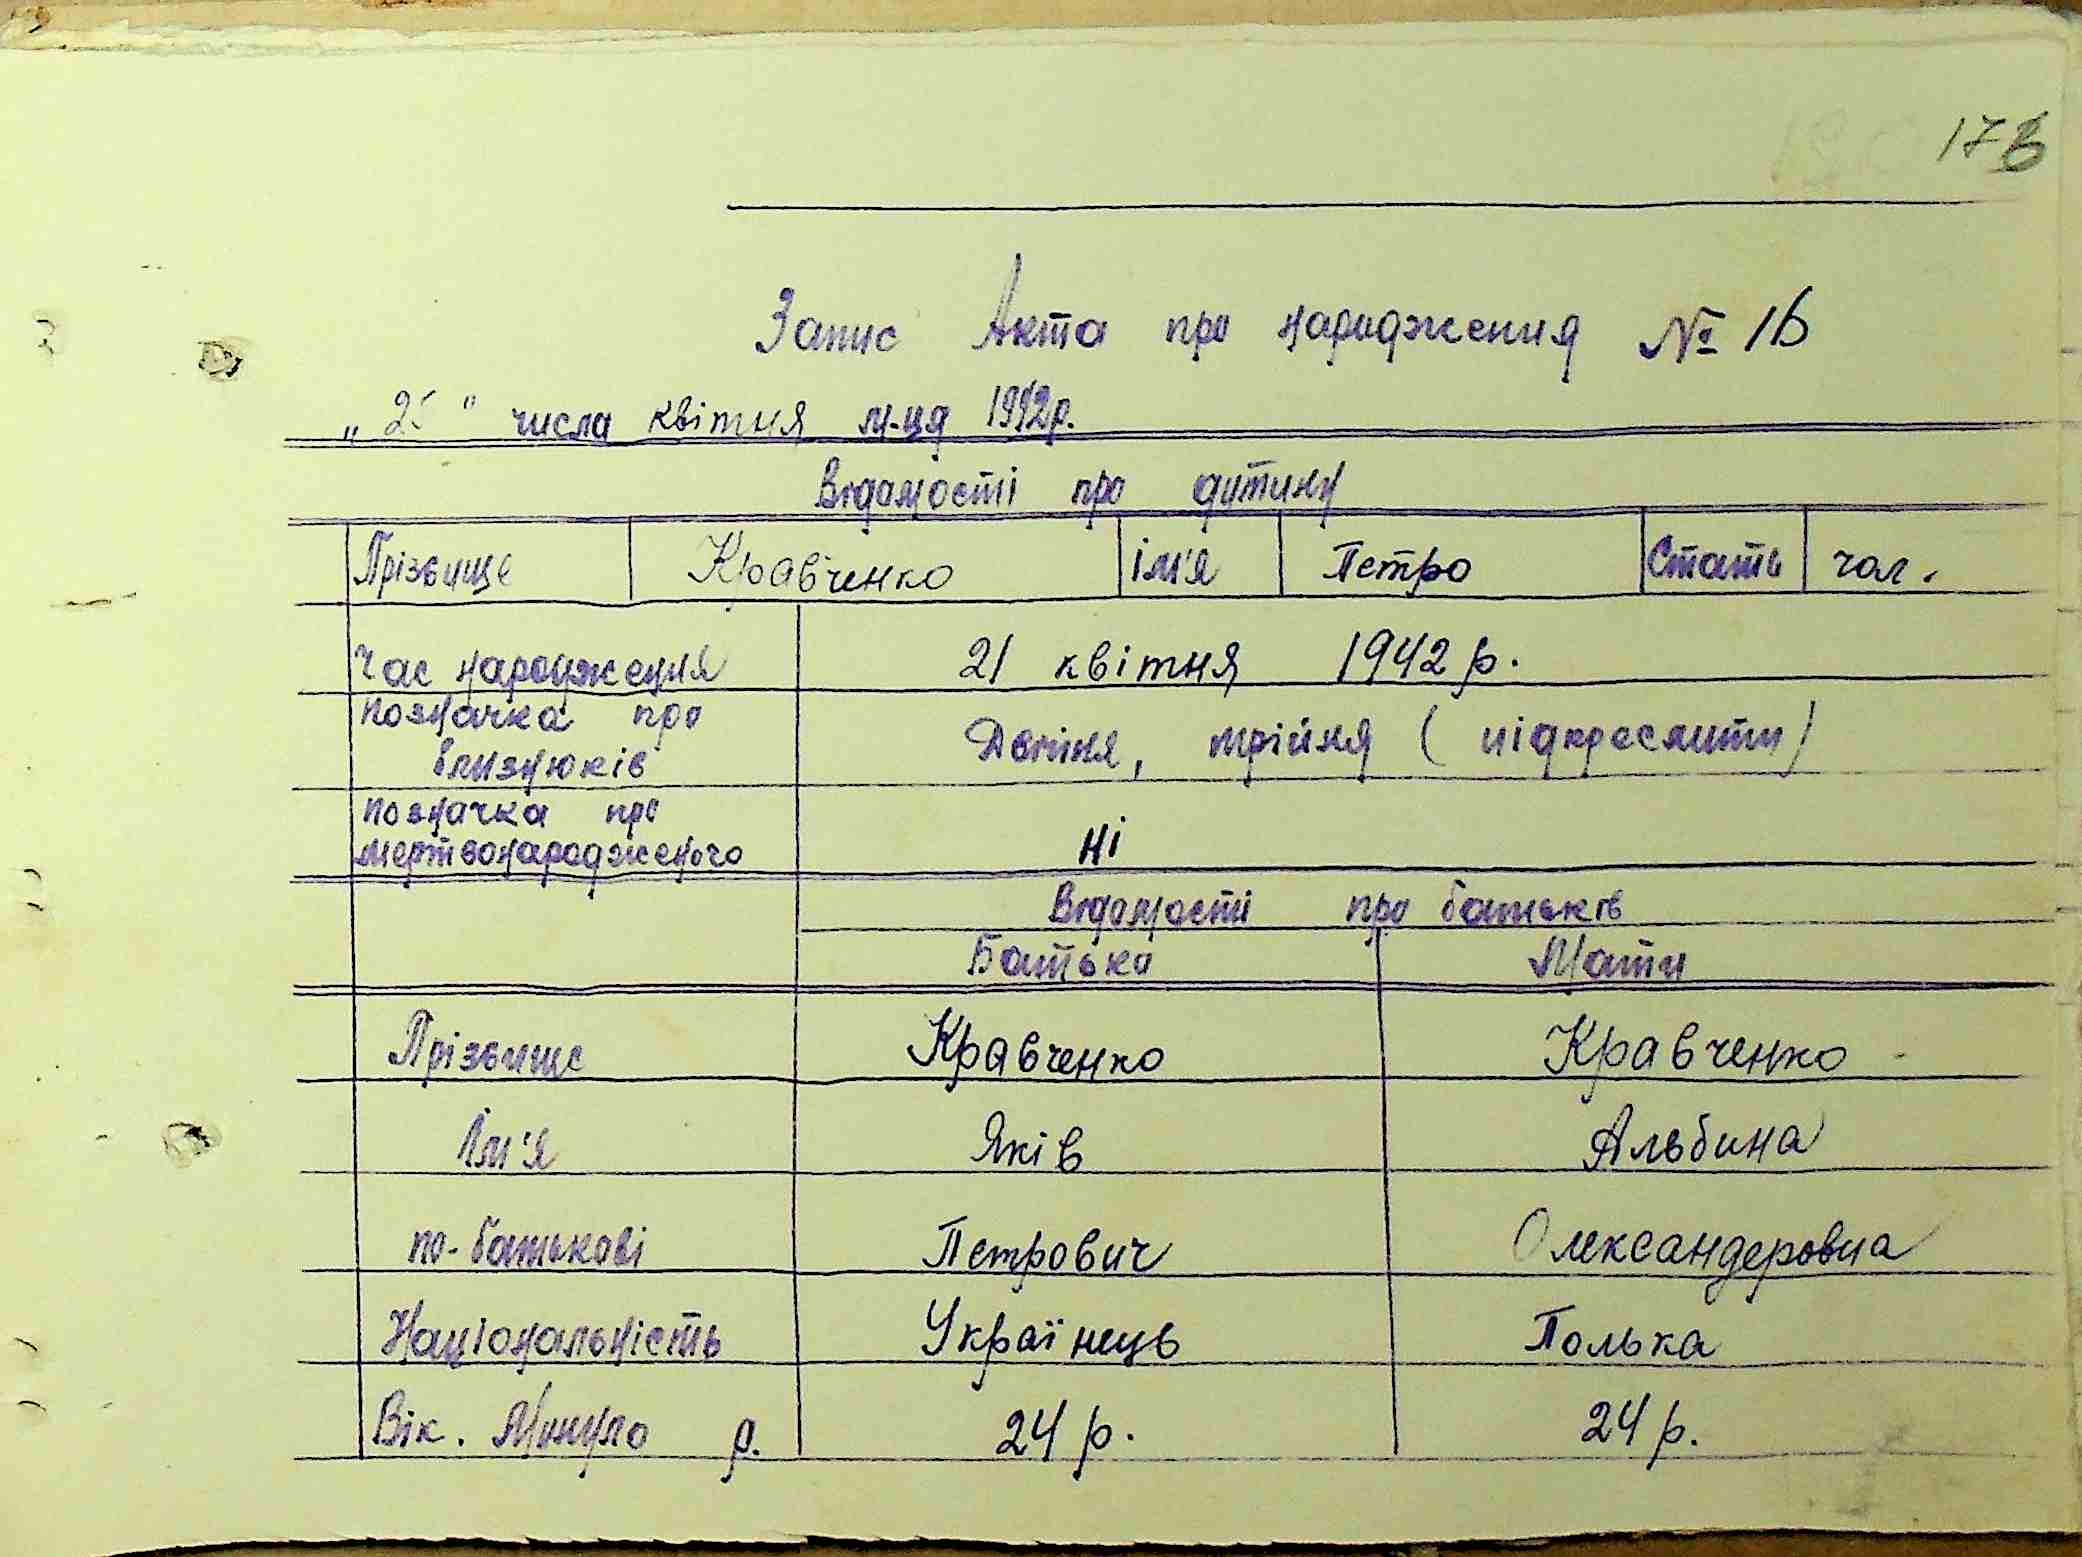 Запис Акта про народження № 16
„25" числа квітня м-ця 1942р.
Відомості про дитину
Прізвище Кравченко ім'я Петро Стать чол.
Час народження 21 квітня 1942 р.
позначка про близнюків Двійня, трійня (підкреслити)
позначка про мертвонародженого ні
Відомості про батьків
Батько Мати
Прізвище Кравченко Кравченко
Ім'я Яків Альбина
по-батькові Петрович Олександеровна
Національність Українець Полька
Вік. Минуло р. 24 р. 24 р.